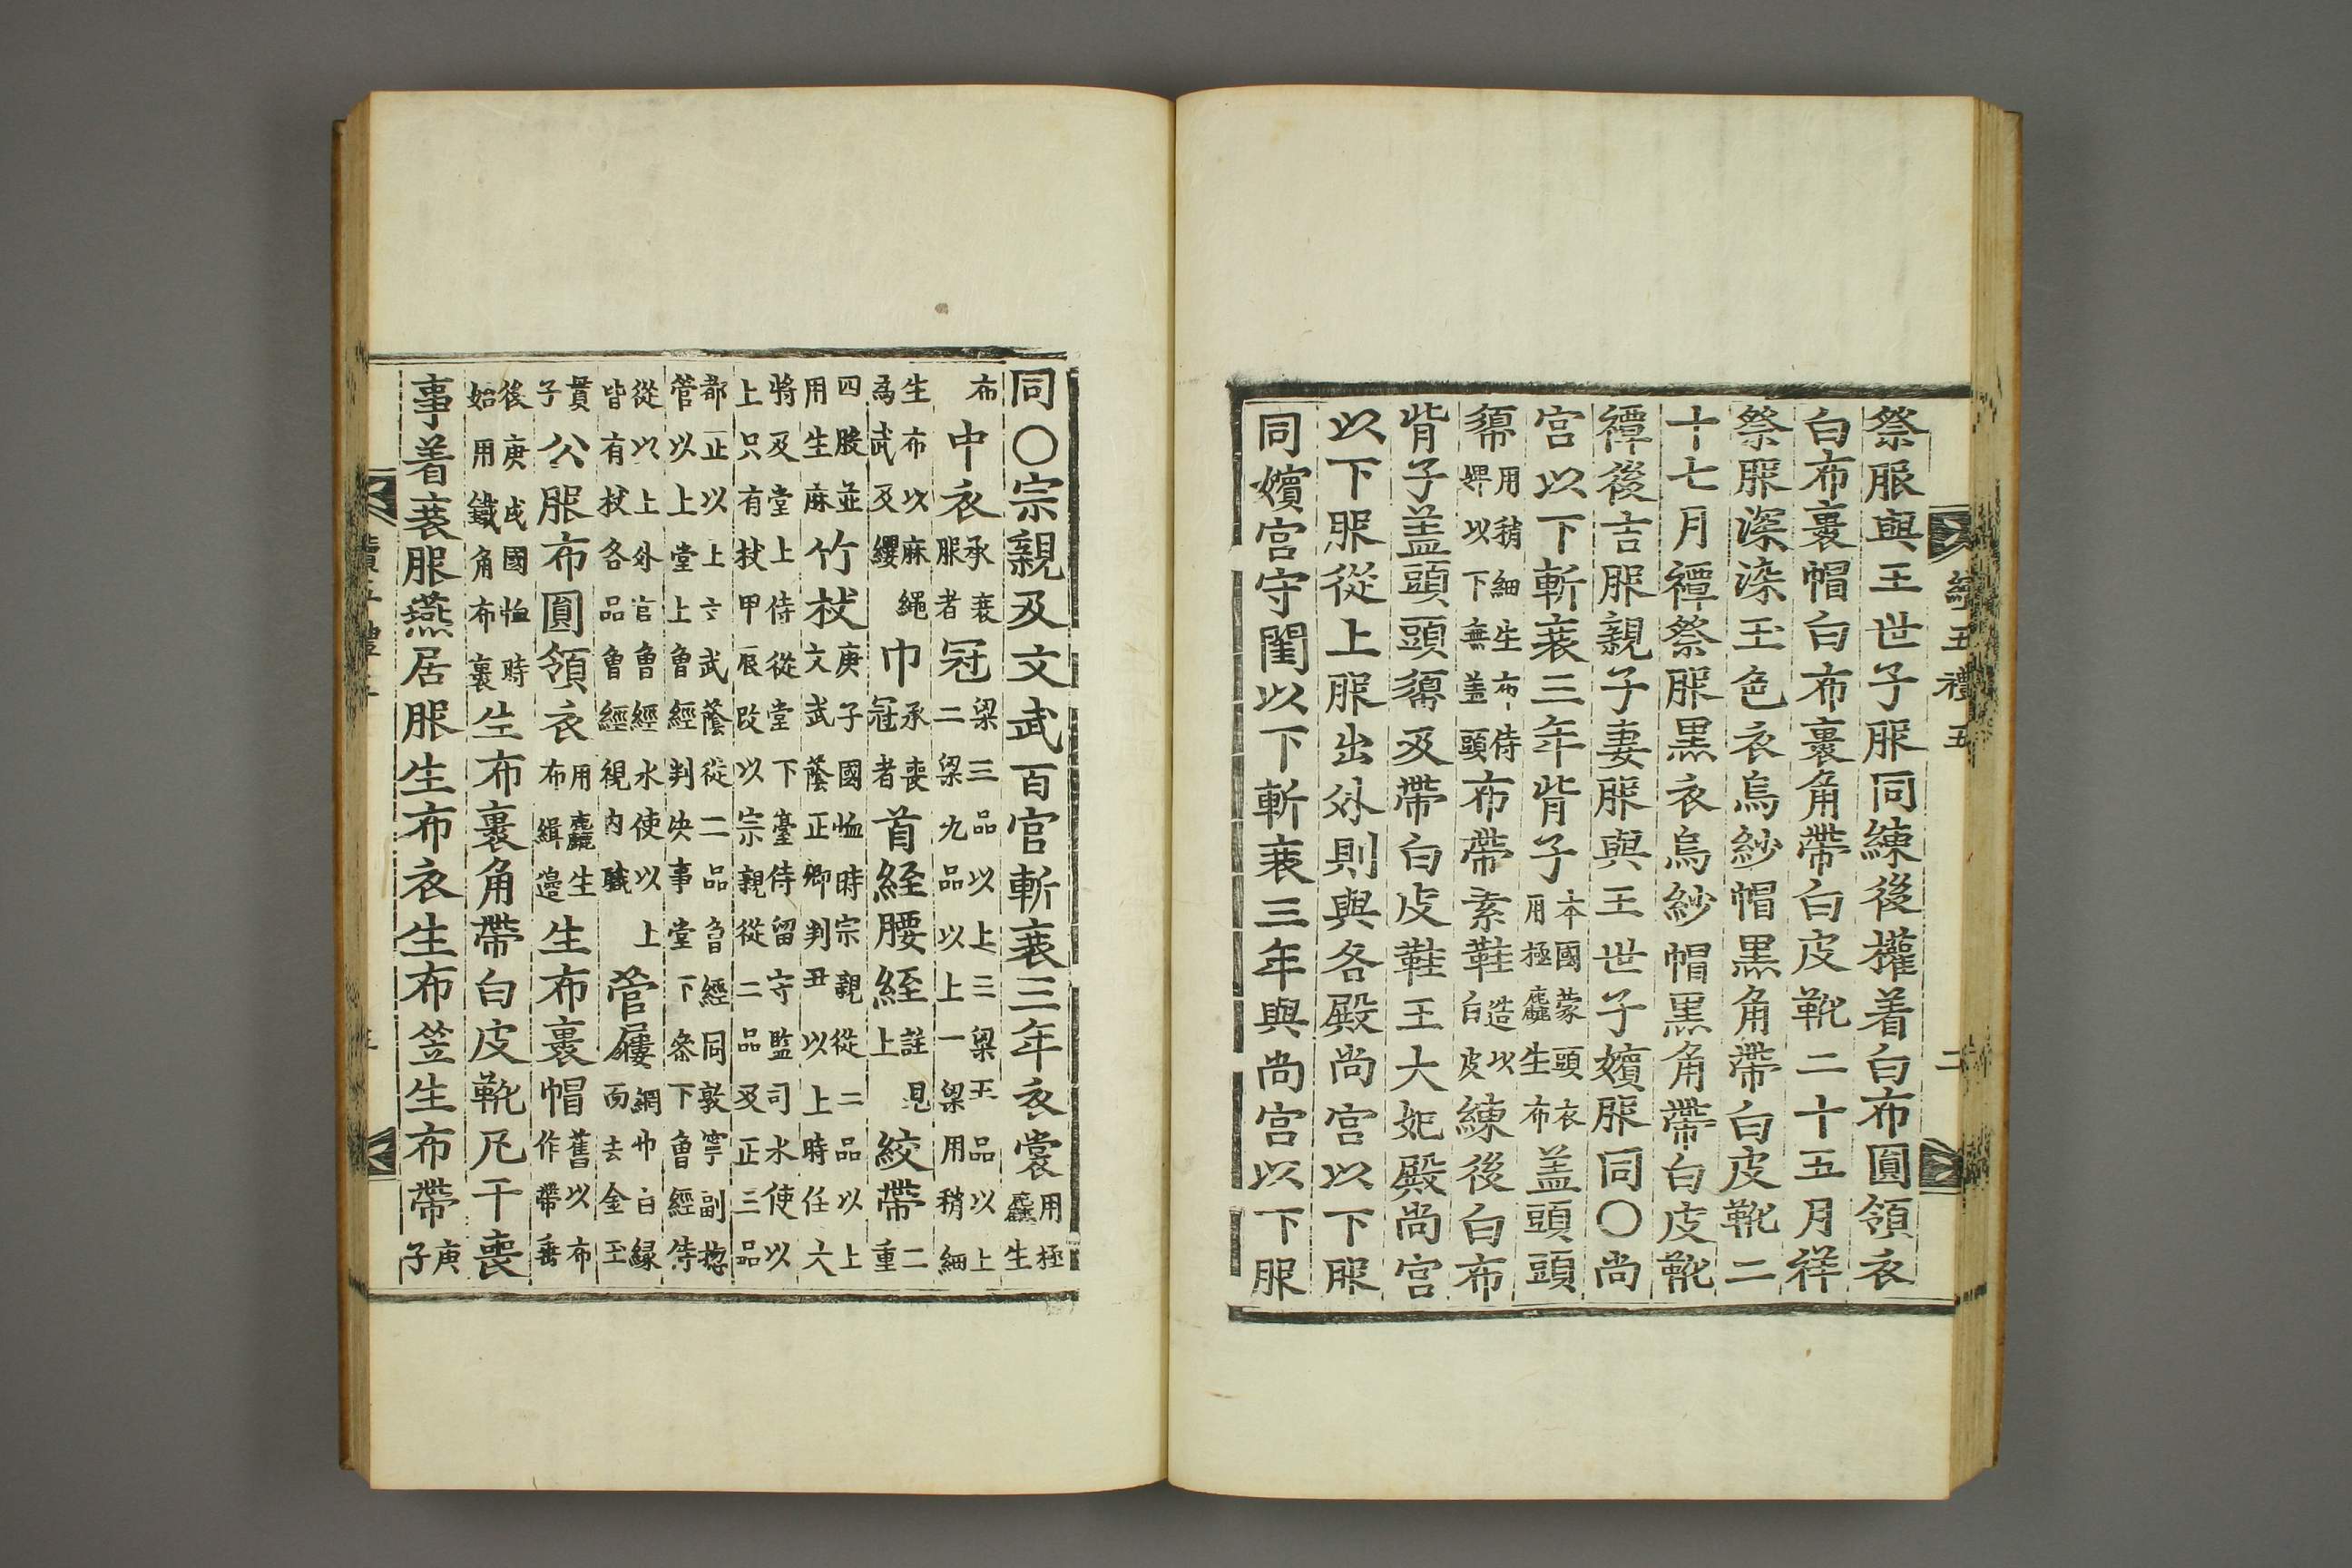 祭服與王世子服同練後權着白布圓領衣
白布裹帽白布裹角帶白皮靴二十五月祥
祭服深染玉色衣烏紗帽黑角帶白皮靴二
十七月禫祭服黑衣烏紗帽黑角帶白皮靴
禫後吉服親子妻服與王世子嬪服同○尚
宮以下斬衰三年背子本國蒙頭衣用極麤生布盖頭頭
𢄼用稍細生布侍婢以下無盖頭布帶素鞋造以白皮練後白布
背子盖頭頭𢄼及帶白皮鞋王大妃殿尚宮
以下服從上服出外則與各殿尚宮以下服
同嬪宮守閨以下斬衰三年與尚宮以下服
同○宗親及文武百官斬衰三年衣裳用極麤生
布中衣承衰服者冠梁三品以上三梁五品以上二梁九品以上一梁用稍細
生布以麻繩爲武及纓巾承喪冠者首絰腰絰註見上絞帶二重
四股並用生麻竹杖庚子國恤時宗親從二品以上文武蔭正卿判丑以上時任六
將及堂上侍從堂下臺侍留守監司水使以上只有杖甲辰改以宗親從二品及正三品
都正以上文武蔭從二品曾經同敦寧副摠管以上堂上曾經判決事堂下叅下曾經侍
從以上外官曾經水使以上皆有杖各品曾經視內職菅屨網巾白緣面去金玉
貫子公服布圓領衣用麤生布緝邊生布裹帽舊以布作帶垂
後庚戌國恤時始用鐵角布裹生布裹角帶白皮靴凡干喪
事着衰服燕居服生布衣生布笠生布帶庚子
續五禮五
二